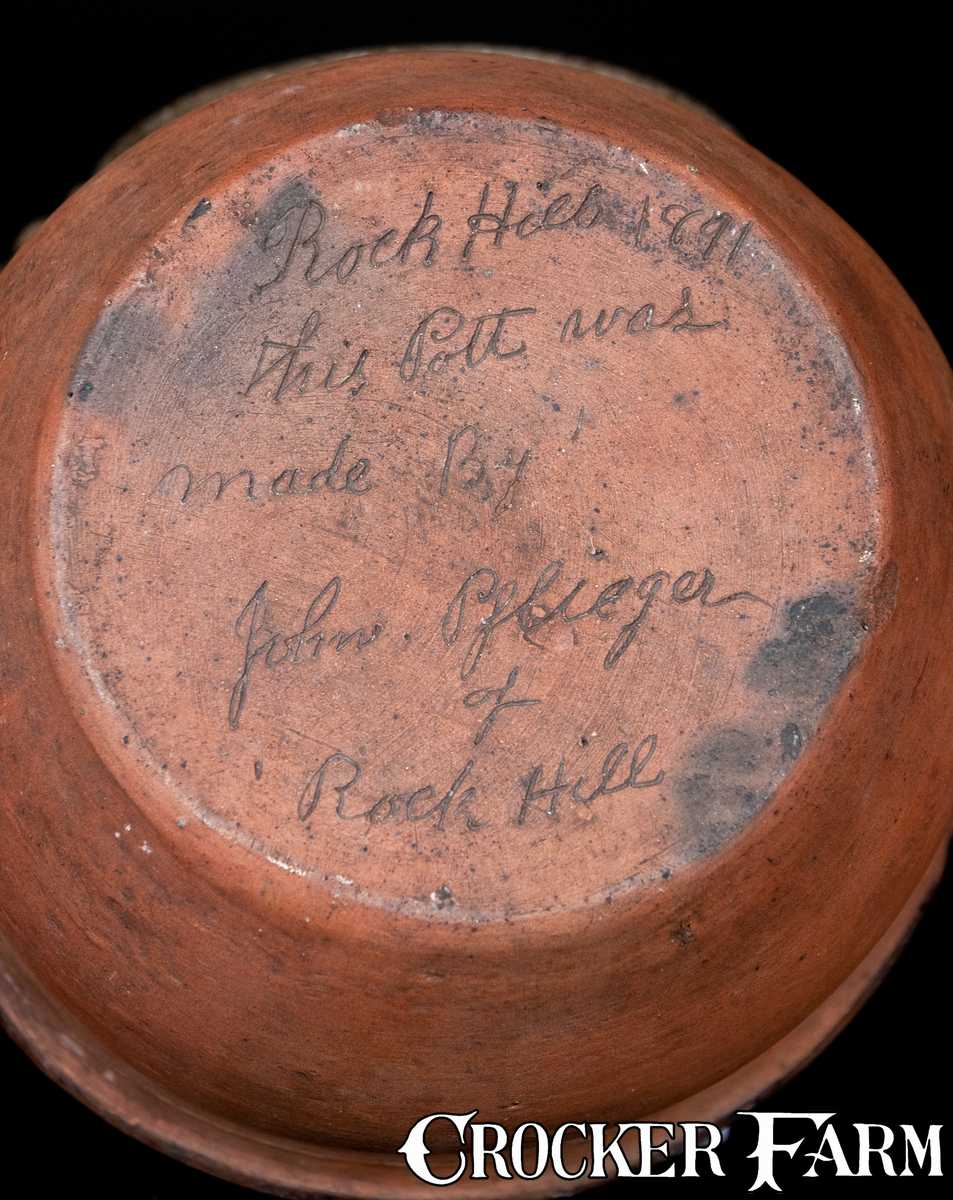 Rock Hill 1891
this Pott was
made By
John. Pflieger
of
Rock Hill
CROCKER FARM